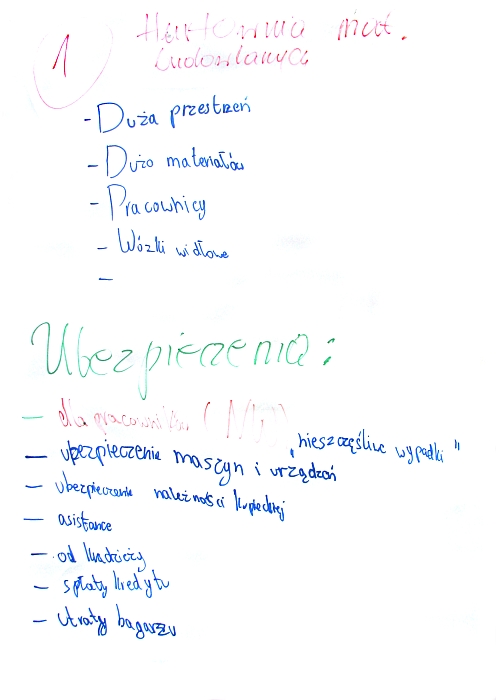 1
Hurtownia mat.
budowlanych
- Duża przestrzeń
- Dużo materiałów
- Pracownicy
- Wózki widłowe
-
Ubezpieczenia:
- dla pracowników (NW)
"nieszczęśliwe wypadki"
- ubezpieczenie maszyn i urządzeń
- ubezpieczenie należności kupieckiej
- asistance
- od kradzieży
- spłaty kredytu
- utraty bagarzu